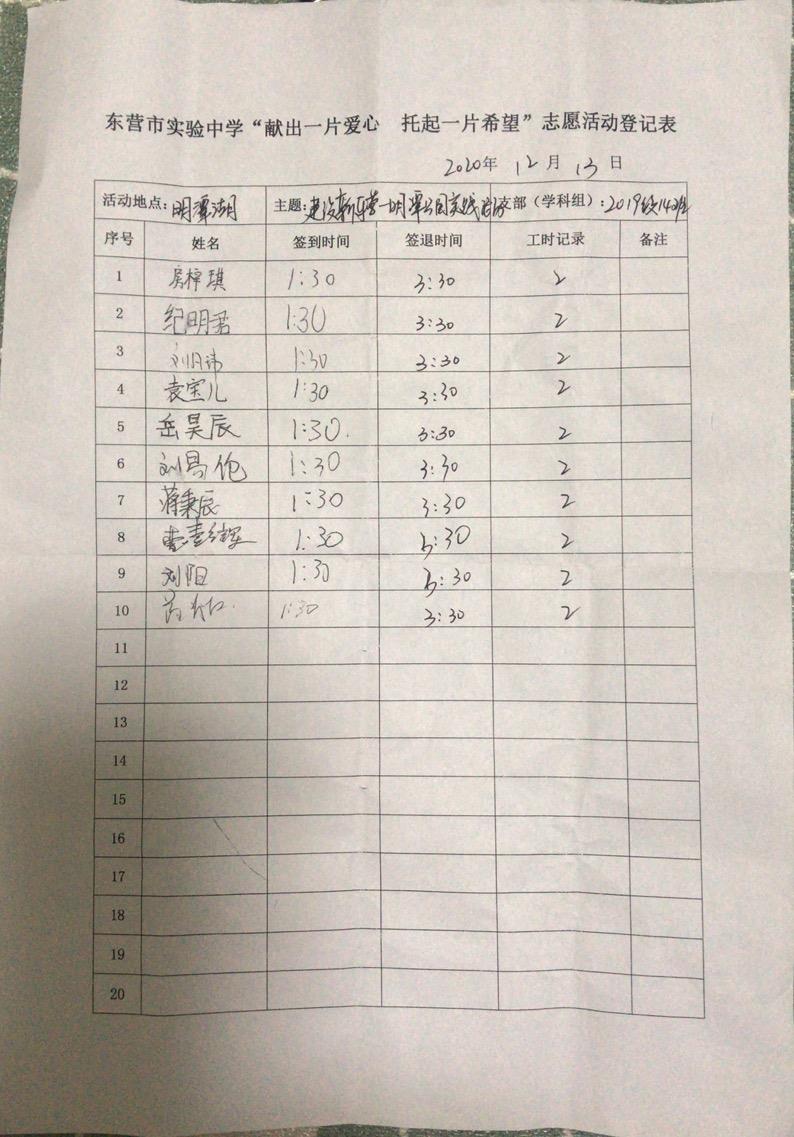 东营市实验中学“献出一片爱心 托起一片希望”志愿活动登记表
2020年 12月 13日
活动地点：明潭湖 主题：建设新东营—明潭公园实践活动 支部（学科组）：2019级14班
序号 姓名 签到时间 签退时间 工时记录 备注
1 房梓琪 1:30 3:30 2
2 纪明君 1:30 3:30 2
3 刘 1:30 3:30 2
4 袁宝儿 1:30 3:30 2
5 岳昊辰 1:30. 3:30 2
6 刘昌伦 1:30 3:30 2
7 蒋秉辰 1:30 3:30 2
8 1:30 3:30 2
9 刘阳 1:30 3:30 2
10 1:30 3:30 2
11
12
13
14
15
16
17
18
19
20